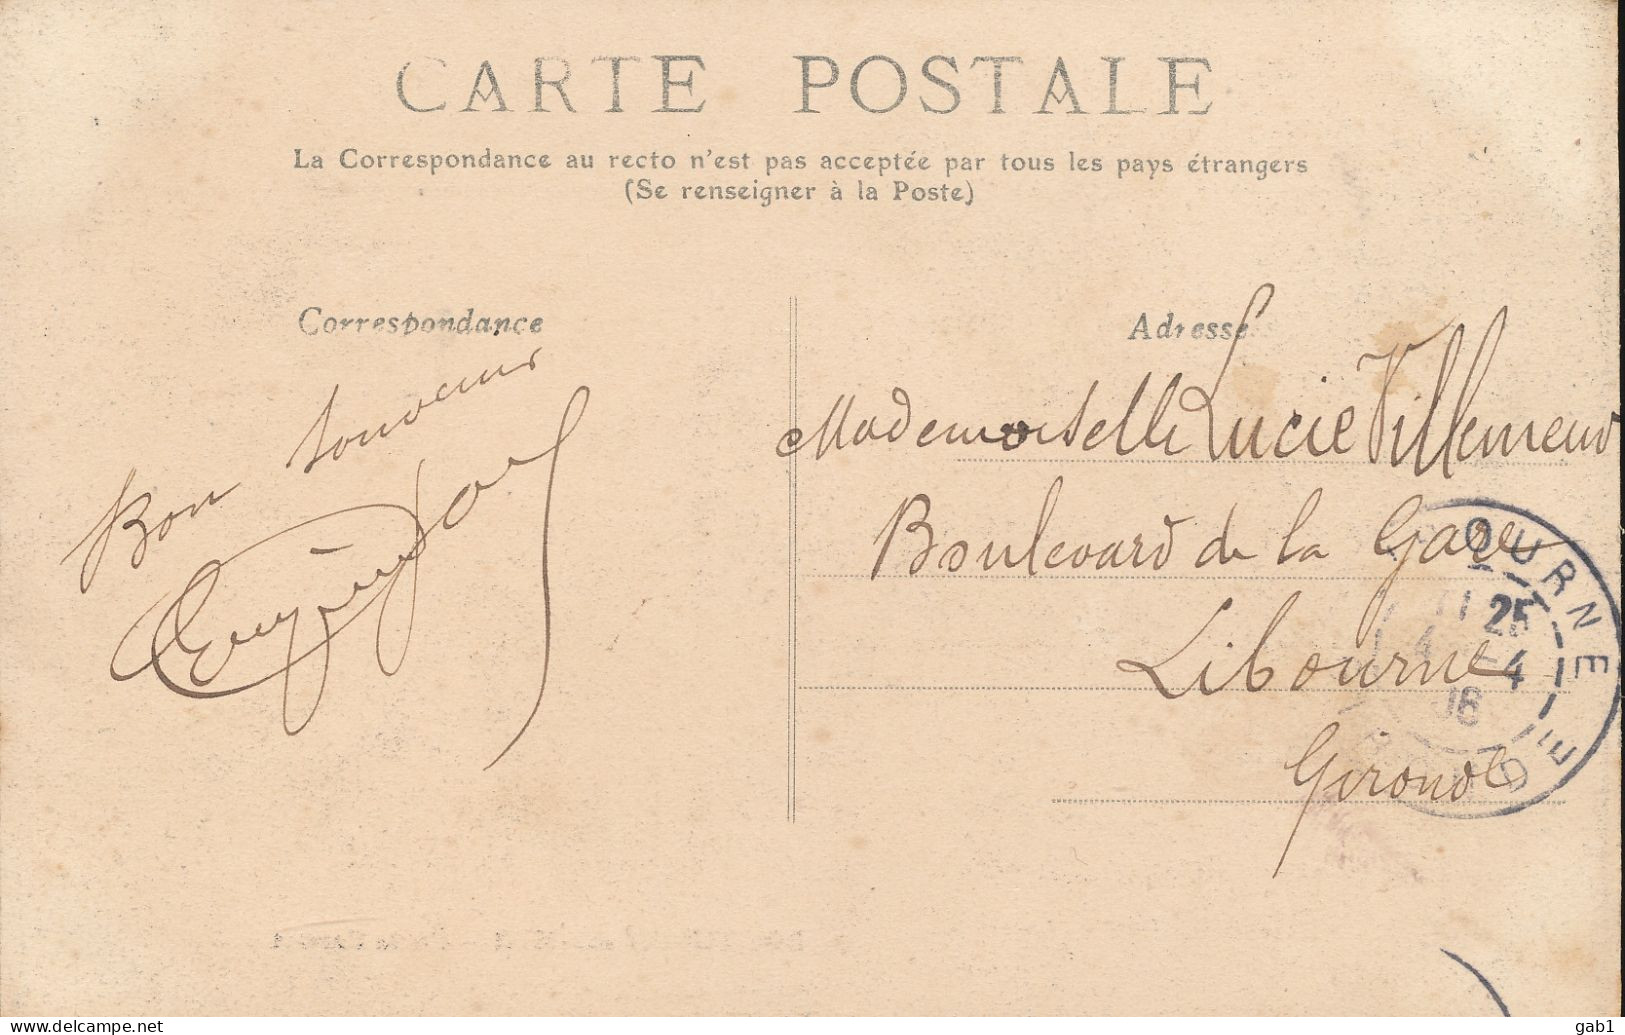 CARTE POSTALE
La Correspondance au recto n'est pas acceptée par tous les pays étrangers
(Se renseigner à la Poste)
Correspondance
Adresse
Bon souvenir
Mademoiselle Lucie Villemeur
Boulevard de la Gare
Libourne
Gironde
OURNE
11 25
4 - 4
08
gab1
www.delcampe.net